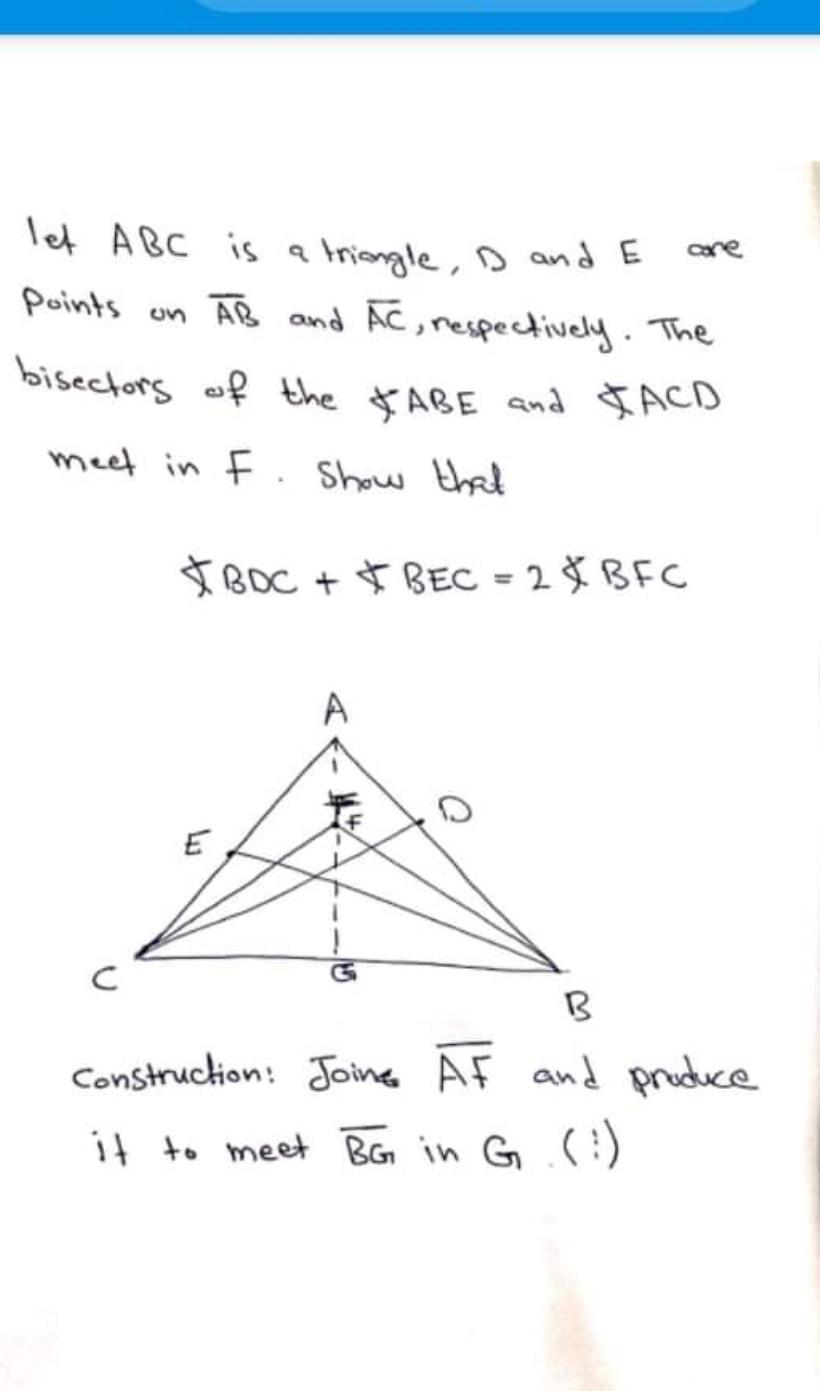 let ABC is a triangle, D and E are
Points on A̅B̅ and A̅C̅, respectively. The
bisectors of the ∡ABE and ∡ACD
meet in F. Show that
∡BDC + ∡BEC = 2∡BFC
A
F
D
E
C
G
B
Construction: Joins A̅F̅ and produce
it to meet B̅G̅ in G. (⋮)